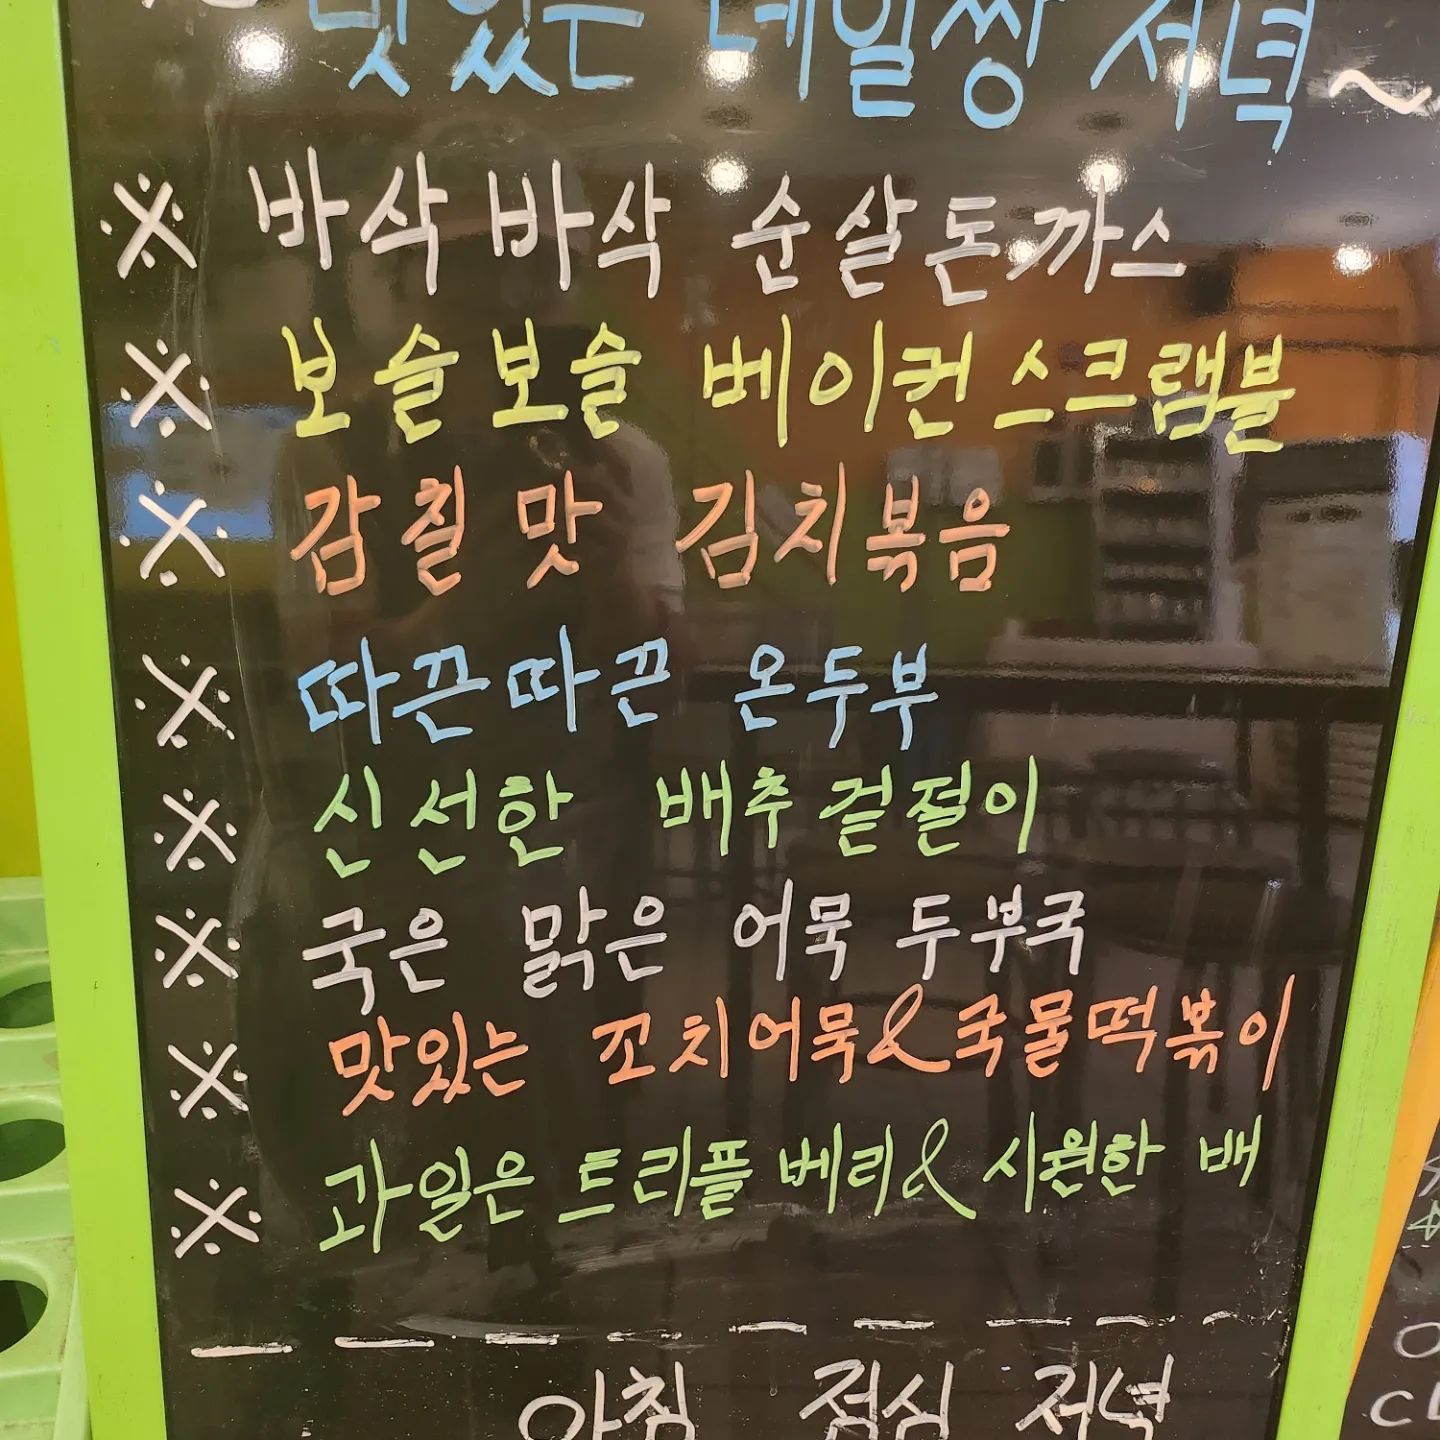 맛있는 데일쌍 저녁~
※ 바삭바삭 순살돈까스
※ 보슬보슬 베이컨스크램블
※ 감칠맛 김치볶음
※ 따끈따끈 온두부
※ 신선한 배추겉절이
※ 국은 맑은 어묵두부국
※ 맛있는 꼬치어묵&국물떡볶이
※ 과일은 트리플베리&시원한 배
아침 점심 저녁